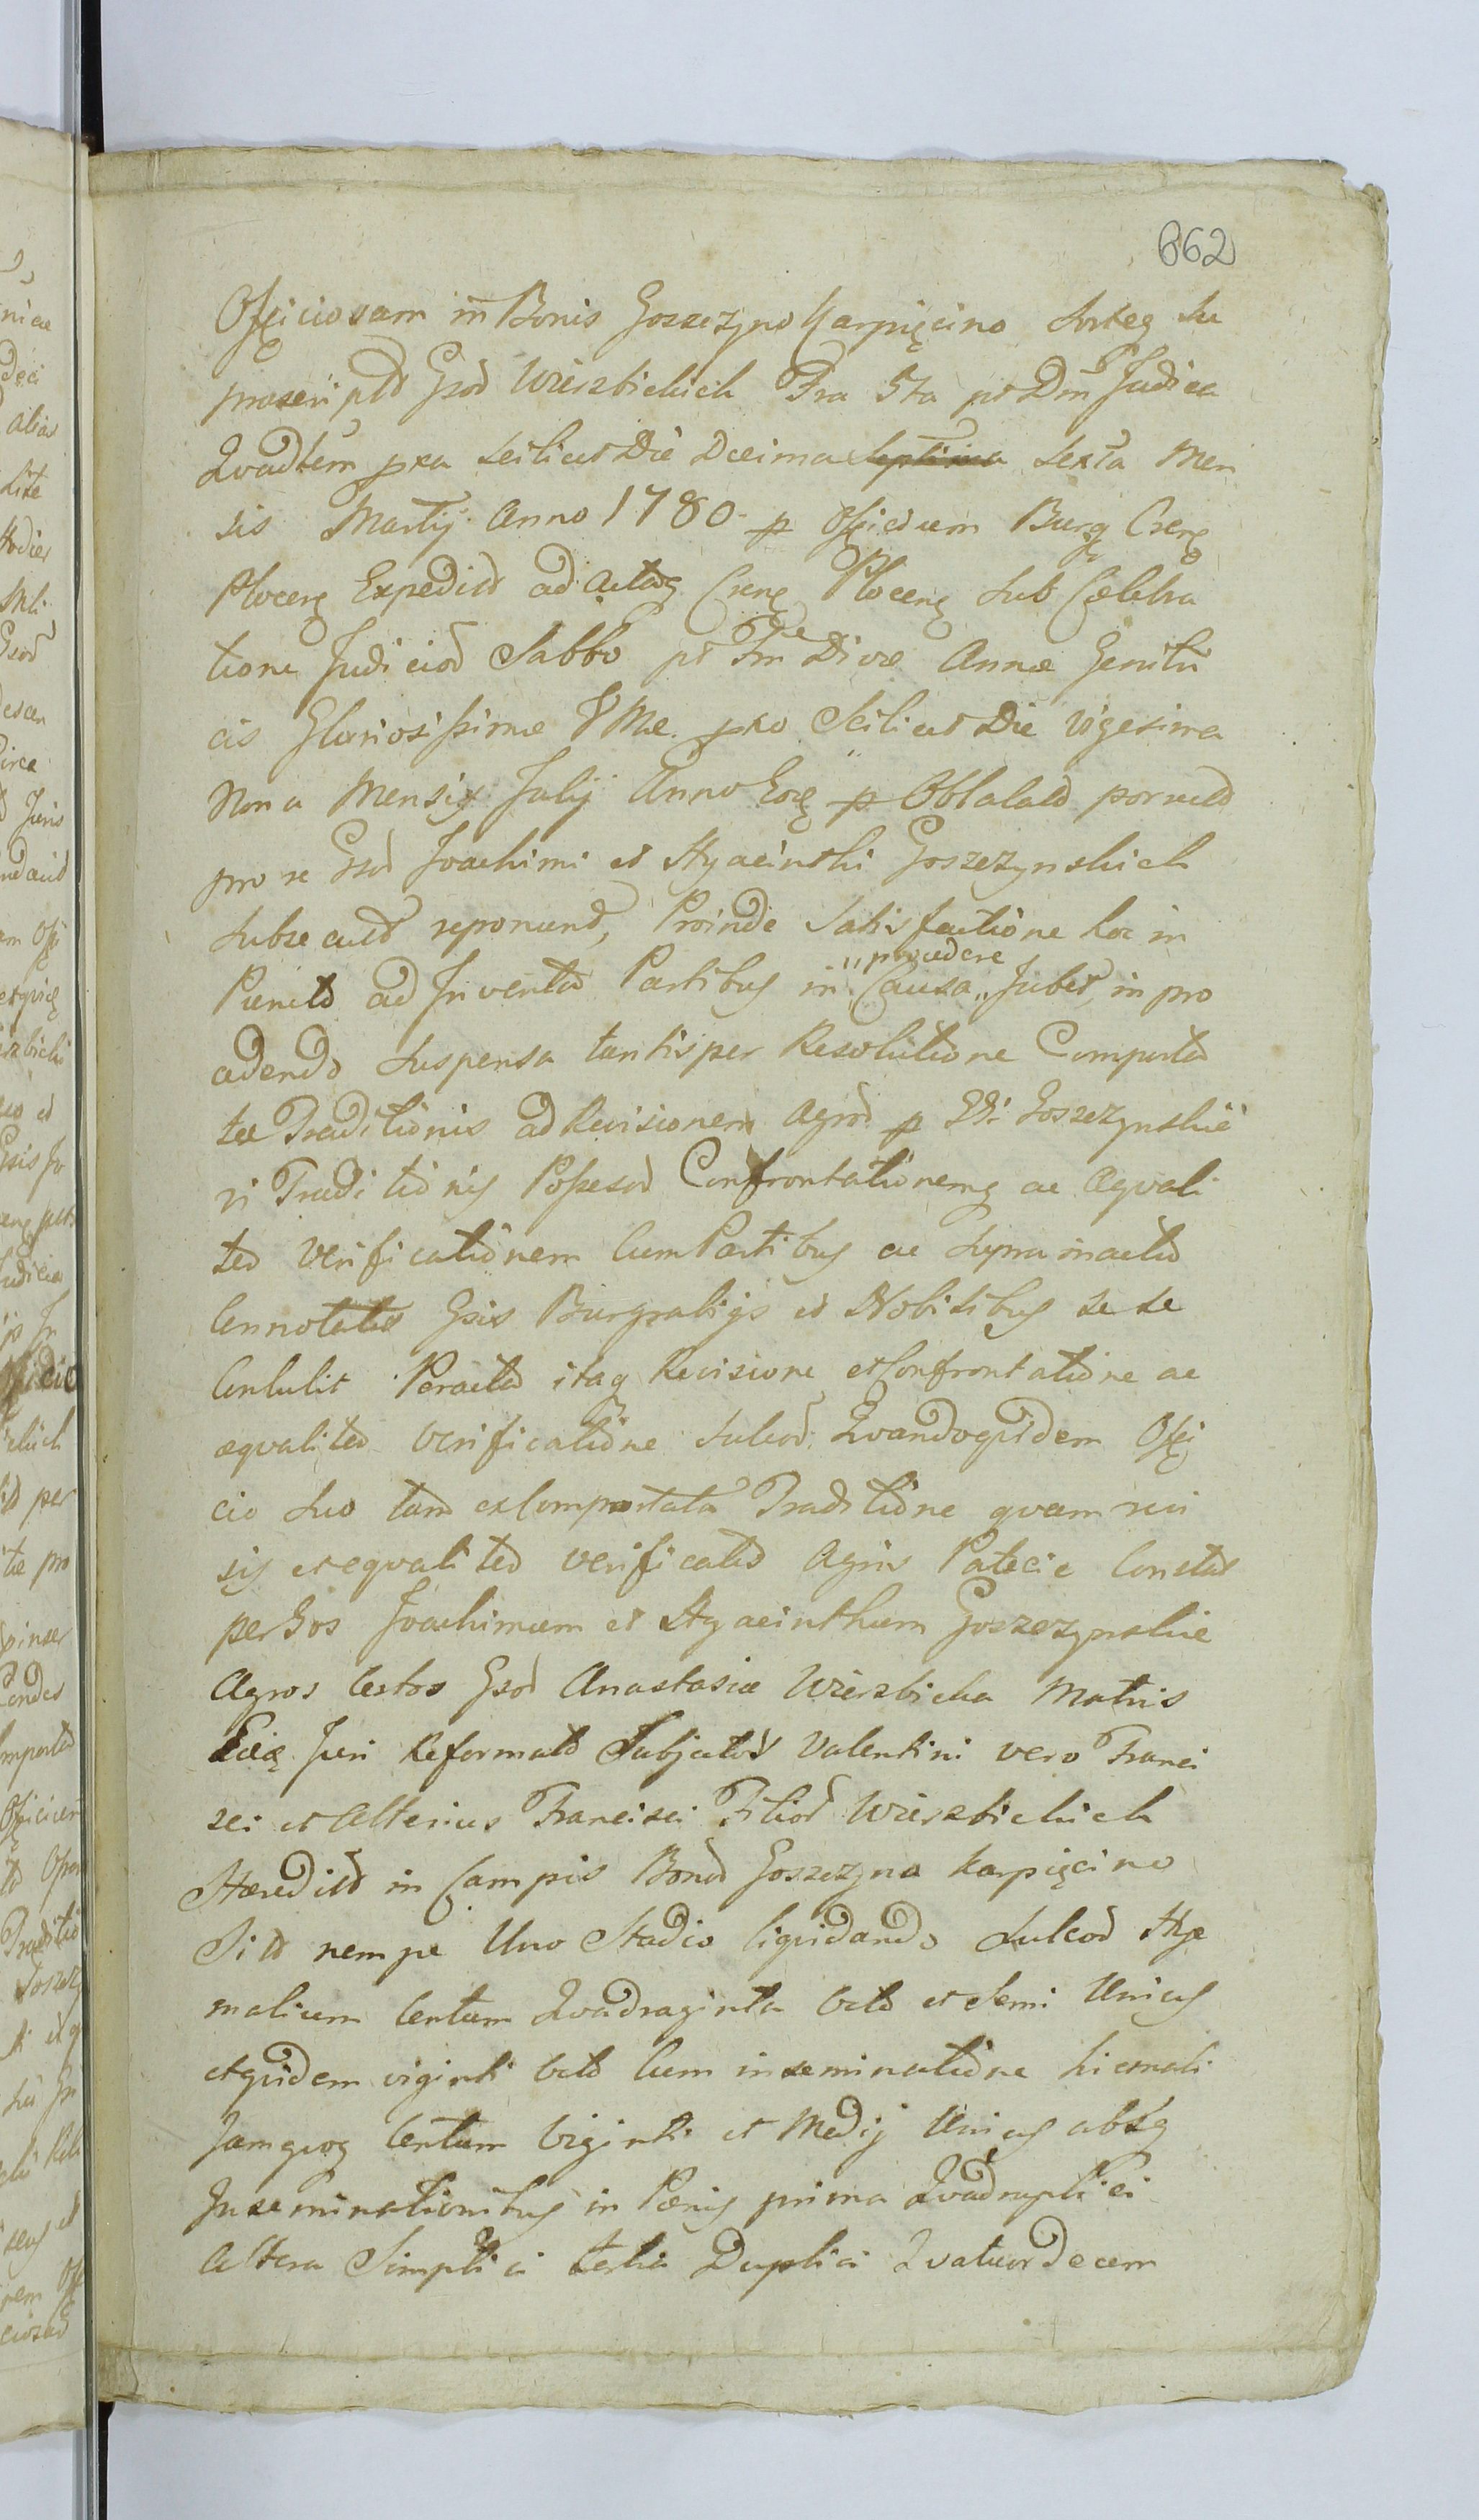 662
Officiosam in Bonis Goszczyno Karpięcino Sorteq Su
prascriptd Gsod Wierzbickich Fra 5ta pt Dm Judica
Qvadtem pxa scilicet Die Decima septima sexta Men
sis Martij Anno 1780 p Officium Burg Cseng
Plocens Expedit ad Actaq Csens Plocens sub Celebra
tione Judiciod Sabbo pt Fm Divæ Annæ Genitri
cis Gloriosissimæ VMæ pxo Scilicet Die Vigesima
Nona Mensis Julij Anno Eoq p Oblatad porrectd
pro se Gsod Joachimi et Hyacinthi Goszczynskich
Subsecutd reponend, Proinde Satisfactione hoc in
Puncto ad Inventa Partibus in Causa "procedere" Jubet, in pro
cedendo Suspensa tantisper Resolutione Comporta
tæ Traditionis ad Revisionem Agrod p GG Goszczynskie
vi Traditionis Possessod Confrontationemq ac Æqvali
ted Verificationem Cum Partibus ac Supra inactid
Connotatis Gsis Burgrabijs et Nobilibus se se
Contulit Peracta itaq Revisione et Confrontatione ac
æqvalited Verificatione Sulcod Qvandoqvidem Offi
cio Suo tam ex Comportata Traditione qvam revi
sis et eqvalited verificatis Agris Patecie Constat
per Gsos Joachimum et Hyacinthum Goszczynskie
Agros Certos Gsod Anastasiæ Wierzbicka Matris
Juri Reformatd Subjectos Valentini vero Franci
sci et Alterius Francisci Filiod Wierzbickich
Hæreditd in Campis Bonod Goszczyna Karpięcino
Sitd nempe Uno Stadio liqvidando Sulcod Hye
malium Centum Qvadraginta Octo et Semi Unius
etqvidem viginti Octo Cum inseminatione hiemali
Jamqvoq Centum Viginti et Medij Unius absq
Inseminationibus in Pænis prima Qvadruplici
Altera Simplici tertia Duplici Qvatuordecem